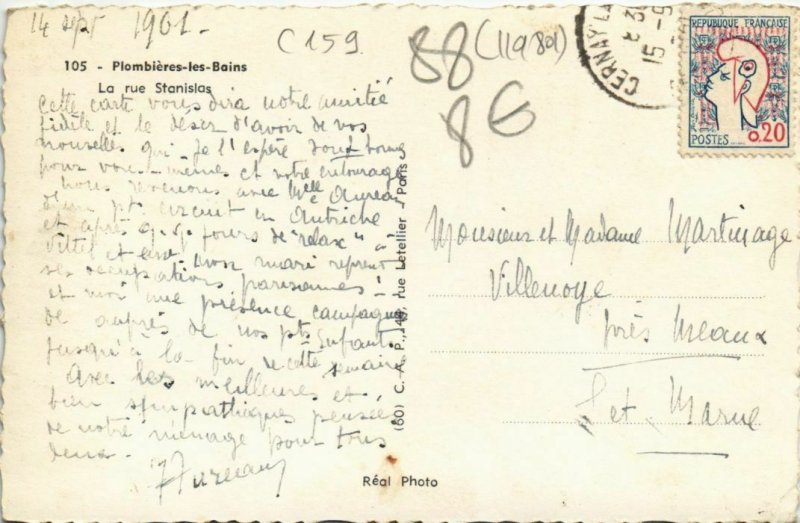 14 sept 1961.
C159.
88 (119801)
8G
CERNAY LA
8 30
15-9
REPUBLIQUE FRANÇAISE
POSTES 0,20
105 - Plombières-les-Bains
La rue Stanislas
Cette carte vous dira notre amitié
fidèle et le désir d'avoir de vos
nouvelles qui - je l'espère sont bonnes
pour vous-mêmes et votre entourage
Nous revenons avec Melle
d'un pt. circuit en Autriche
et après q.q. jours de "relax" à
Vittel et mon mari reprend
ses occupations parisiennes -
et moi une présence campagnarde
auprès de nos pts Enfants
jusqu'à la fin de cette semaine
Avec les meilleures et
bien sympathiques pensées
de notre ménage pour tous
deux.
(60) C. A. P., 44, rue Letellier - Paris
Monsieur et Madame Martinage
Villenoye
près Meaux
S. et Marne
Réal Photo